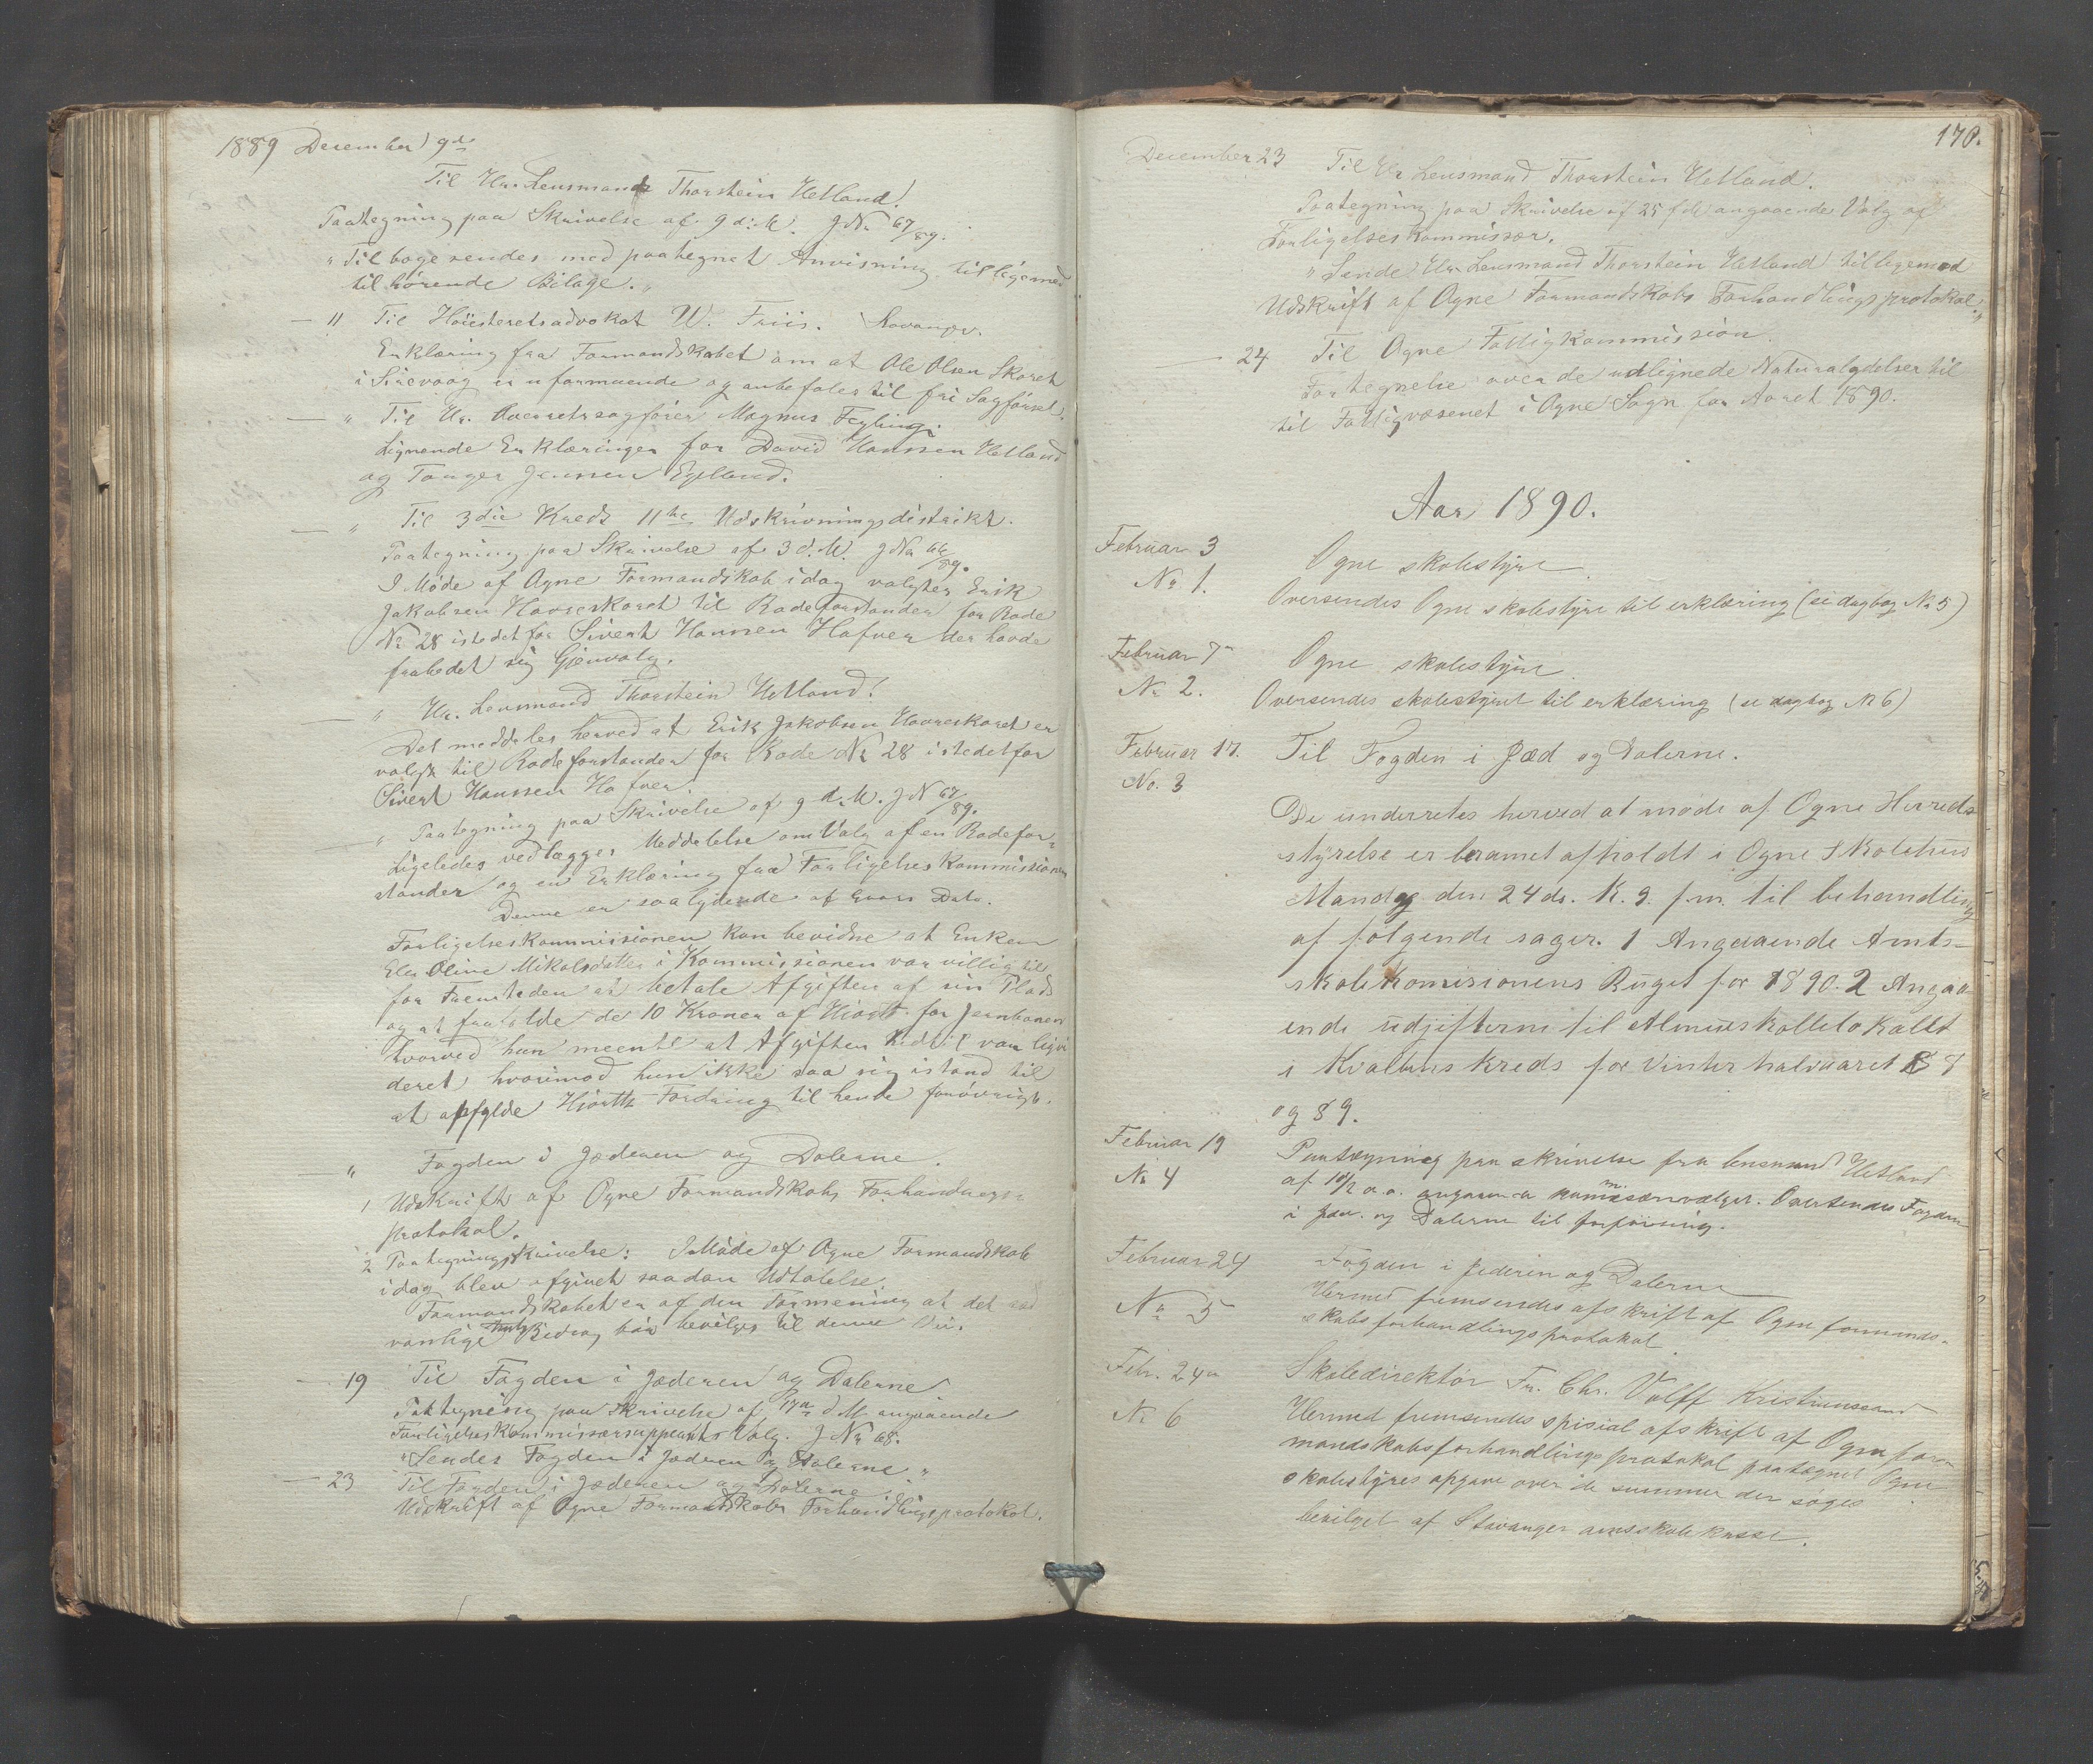 1889 December 9de
Til Hr. Lensmand Thorstein Hetland!
Paategning paa Skrivelse af 9 d: M. J No 67/89.
"Tilbagesendes med paategnet Anvisning tilligemed
tilhørende Bilage."
— 11 Til Høiesteretsadvokat W. Friis.
Erklæring fra Formandskabet om at Ole Olsen Skaret
i Sirevaag er uformuende og anbefales til fri Sagførsel.
— " Til Hr. Overretssagfører Magnus Feyling.
Lignende Erklæringer for David Hanssen Hetland
og Tonger Jenssen Egeland.
— " Til 3die Kreds 11te Udskrivningsdistrikt.
Paategning paa Skrivelse af 3 d. M. J No 66/89.
I Møde af Ogne Formandskab idag valgtes Erik
Jakobsen Haareskaret til Rodeforstander for Rode
No 28 istedetfor Sivert Hanssen Hafver der havde
frabedet sig Gjenvalg.
— " Hr. Lensmand Thorstein Hetland!
Det meddeles herved at Erik Jakobsen Haareskaret er
valgt til Rodeforstander for Rode No 28 istedetfor
Sivert Hanssen Hafver.
— " Paategning paa Skrivelse af 9 d. M. J N 67/89.
Ligeledes vedlægges Meddelelse om Valg af en Rodefor=
stander og en Erklæring fra Forligelseskommissionen
Denne er saalydende af Dato.
Forligelseskommissionen kan bevidne at Enken
Elen Oline Mikalsdatter i Kommissionen var villig til
for Fremtiden at betale Afgiften af sin Plads
og at frafalde de 10 Kroner af Hjorth for Jernbanen
hvorved hun meente at Afgiften hidtil var liqvi
deret, hvorimod hun ikke saa sig istand til
at opfylde Hjorths Fordring til hende forøvrigt.
— " Fogden i Jæderen og Dalerne.
1 Udskrift af Ogne Formandskabs Forhandlings=
protokol.
2 Paategningsskrivelse: I Møde af Ogne Formandskab
idag blev afgivet saadan Udtalelse.
Formandskabet er af den Formening at det
vanlige Bidrag bør bevilges til denne Vei.
— 19 Til Fogden i Jæderen og Dalerne.
Paategning paa Skrivelse af 17de d M. angaaende
Forligelseskommissærsuppleants Valg. J No 68.
"Sendes Fogden i Jæderen og Dalerne."
— 23 Til Fogden i Jæderen og Dalerne.
Udskrift af Ogne Formandskabs Forhandlingsprotokol.
170.
December 23 Til Hr Lensmand Thorstein Hetland.
Paategning paa Skrivelse af 25 f M angaaende Valg af
Forligelseskommissær.
"Sendes Hr. Lensmand Thorstein Hetland tilligemed
Udskrift af Ogne Formandskabs Forhandlingsprotokol."
— 24 Til Ogne Fattigkommission.
Fortegnelse over de udlignede Naturalydelser til
til Fattigvæsenet i Ogne Sogn for Aaret 1890.
Aar 1890.
Februar 3 Ogne skolestyre.
No 1. Oversendes Ogne skolestyre til erklæring (se dagbog No 5)
Februar 7 Ogne skolestyre.
No 2. Oversendes skolestyret til erklæring (se dagbog N 6)
Februar 17. Til Fogden i Jæd og Dalerne.
No. 3
De underretes herved at møde af Ogne Herreds
styrelse er beramet afholdt i Ogne Skolehus
Mandag den 24 ds. K. 9. f.m. til behandling
af følgende sager. 1 Angaaende Amts=
skolekomisionens Buget for 1890. 2 Angaa
ende udjifterne til Almueskollelokallt
i Kvallens kreds for Vinterhalvaaret 88
og 89.
Februar 19 Paategning paa skrivelse fra lensmand Hetland
No 4 af 18/2 a.a. angaaende kommisærvalget. Oversendes Fogden
i Jæd. og Dalerne til forføining.
Februar 24 Fogden i Jederen og Dalerne
No 5 Hermed fremsendes afskrift af Ogne formands=
skabs forhandlingsprotokol.
Febr. 24 Skoledirektør Fr. Chr. Volff Kristianssand
No 6 Hermed fremsendes spisial afskrift af Ogne for=
mandskabsforhandlings protokol paategnet Ogne
skolestyres opgave over de summer der søges
bevilget af Stavanger amsskolekasse.